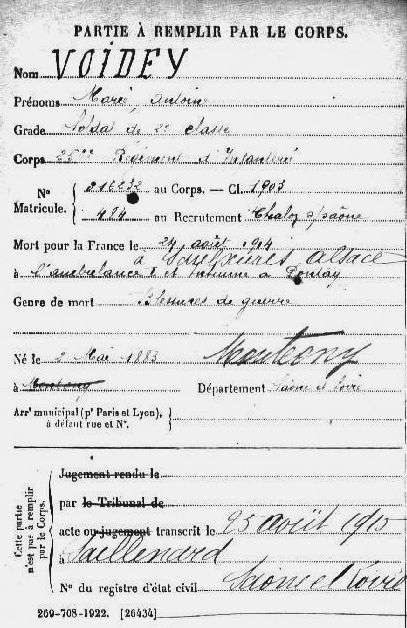 PARTIE À REMPLIR PAR LE CORPS.
Nom VOIDEY
Prénoms Marie Antoine
Grade Soldat de 2e classe
Corps Régiment d'Infanterie
Nos Matricule. au Corps. — Cl. 1903
484 au Recrutement Chalon s/Saône
Mort pour la France le 27 août 1914
à l'ambulance et inhumé à
Alsace
Genre de mort Blessures de guerre
Né le 2 Mai 1883
à Département Saône et Loire
Arrt municipal (pr Paris et Lyon), à défaut rue et N°.
Cette partie n'est pas à remplir par le Corps.
Jugement rendu le
par le Tribunal de
acte ou jugement transcrit le 25 août 1915
à Saillenard
N° du registre d'état civil Saône et Loire
269-708-1922. [26434]